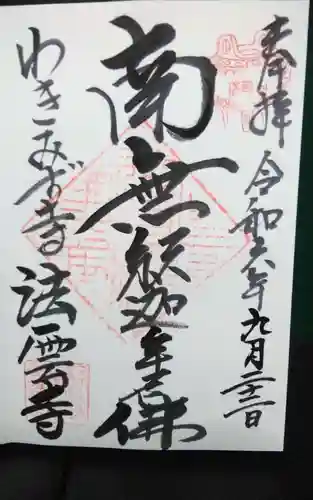 奉拝 令和六年九月二十二日
南無釈迦牟尼佛
わきこみず寺 法雲寺